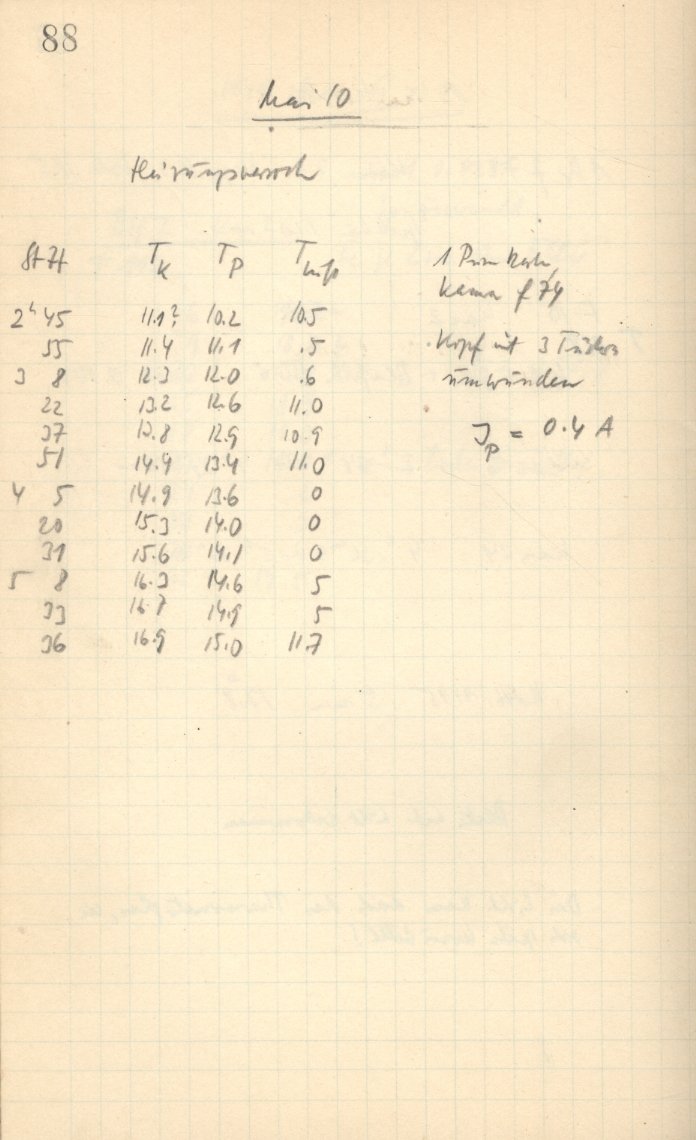 88
Mai 10
Heizungsversuch
St Zt T_K T_P T_Luft
2ʰ 45 11.1? 10.2 10.5
55 11.4 11.1 .5
3 8 12.3 12.0 .6
22 13.2 12.6 11.0
37 13.8 12.9 10.9
51 14.4 13.4 11.0
4 5 14.9 13.6 0
20 15.3 14.0 0
31 15.6 14.1 0
5 8 16.3 14.6 5
33 16.7 14.9 5
36 16.9 15.0 11.7
1 Prism
Kamera f 74
Kopf mit 3 Tüchern
umwunden
J_P = 0.4 A